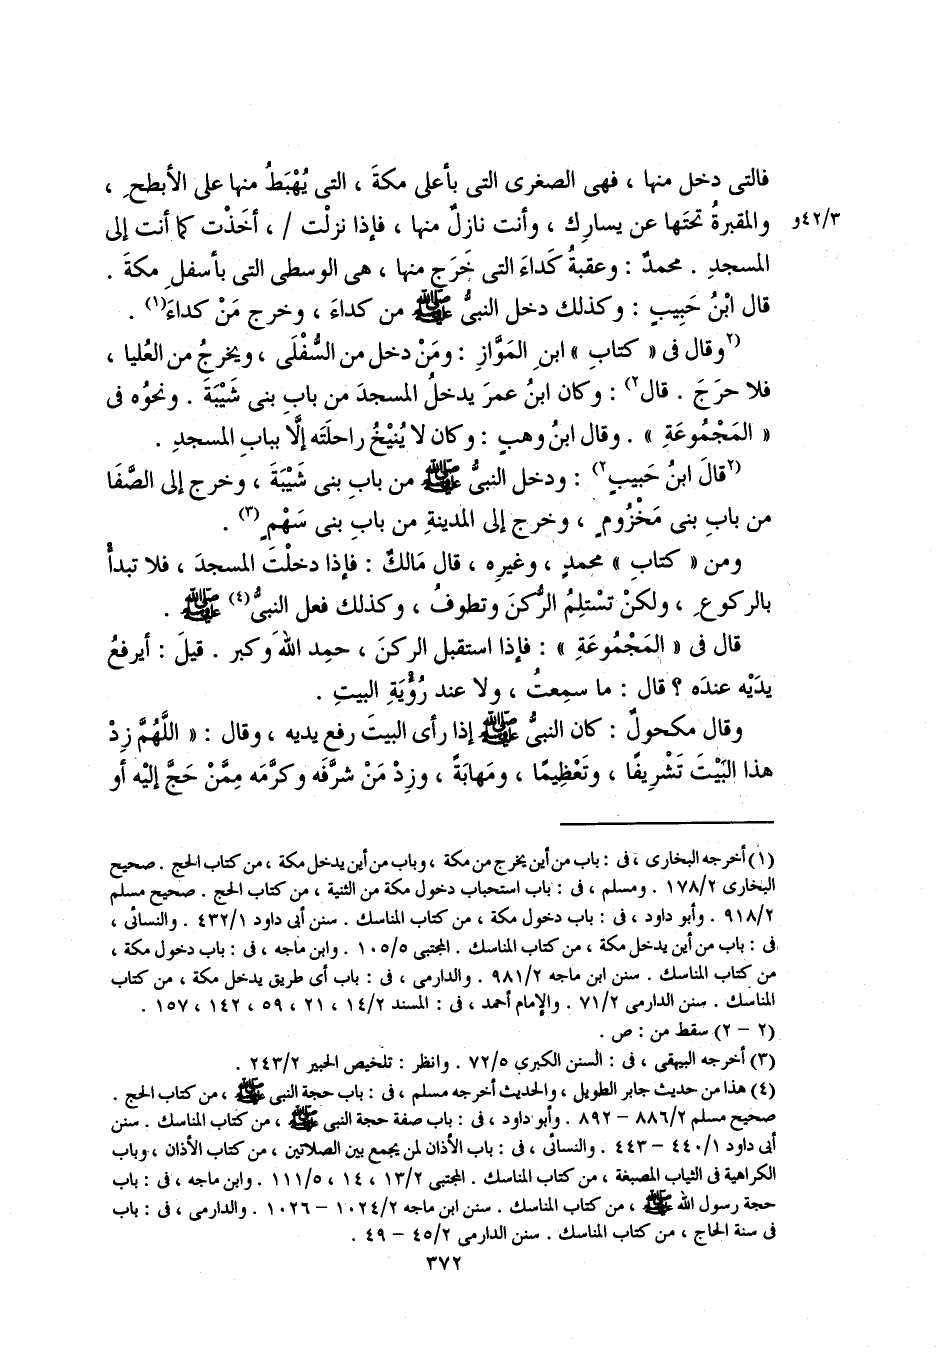 فالتى دخل منها ، فهى الصغرى التى بأعلى مكةَ ، التى يُهْبَطُ منها على الأبطحِ ،
٤٢/٣و والمقبرةُ تحتَها عن يسارِك ، وأنت نازلٌ منها ، فإذا نزلْت / ، أخَذْت كما أنت إلى
المسجدِ . محمدٌ : وعقبةُ كَداءَ التى خَرَج منها ، هى الوسطى التى بأسفلِ مكةَ .
قال ابْنُ حَبِيبٍ : وكذلك دخل النبىُّ ﷺ من كداءَ ، وخرج مَنْ كداءَ(١) .
(٢وقال فى « كتابِ » ابنِ المَوَّازِ : ومَنْ دخل من السُّفْلَى ، ويخرجُ من العُليا ،
فلا حرَجَ . قال٢) : وكان ابنُ عمرَ يدخلُ المسجدَ من بابِ بنى شَيْبَةَ . ونحوُه فى
« المَجْمُوعَةِ » . وقال ابنُ وهبٍ : وكان لا يُنيْخُ راحلَتَه إلَّا ببابِ المسجدِ .
(٢قالَ ابنُ حَبيبٍ٢) : ودخل النبىُّ ﷺ من بابِ بنى شَيْبَةَ ، وخرج إلى الصَّفَا
من بابِ بنى مَخْزُومٍ ، وخرج إلى المدينةِ من بابِ بنى سَهْمٍ(٣) .
ومن « كتابِ » محمدٍ ، وغيرِه ، قال مَالكٌ : فإذا دخلْتَ المسجدَ ، فلا تبدأْ
بالركوعِ ، ولكنْ تسْتلِمُ الرُّكنَ وتطوفُ ، وكذلك فعل النبىُّ(٤) ﷺ .
قال فى « المَجْمُوعَةِ » : فإذا استقبل الركنَ ، حمِد اللهَ وكبر . قيلَ : أيرفعُ
يدَيْه عندَه ؟ قال : ما سمِعتُ ، ولا عند رُؤْيَةِ البيتِ .
وقال مكحولٌ : كان النبىُّ ﷺ إذا رأى البيتَ رفع يديه ، وقال : « اللَّهُمَّ زِدْ
هذا البَيْتَ تَشْرِيفًا ، وتَعْظِيمًا ، ومَهابَةً ، وزِدْ مَنْ شرَّفَه وكرَّمَه مِمَّنْ حَجَّ إليْه أو
(١) أخرجه البخارى ، فى : باب من أين يخرج من مكة ، وباب من أين يدخل مكة ، من كتاب الحج . صحيح
البخارى ١٧٨/٢ . ومسلم ، فى : باب استحباب دخول مكة من الثنية ، من كتاب الحج . صحيح مسلم
٩١٨/٢ . وأبو داود ، فى : باب دخول مكة ، من كتاب المناسك . سنن أبى داود ٤٣٢/١ . والنسائى ،
فى : باب من أين يدخل مكة ، من كتاب المناسك . المجتبى ١٠٥/٥ . وابن ماجه ، فى : باب دخول مكة ،
من كتاب المناسك . سنن ابن ماجه ٩٨١/٢ . والدارمى ، فى : باب أى طريق يدخل مكة ، من كتاب
المناسك . سنن الدارمى ٧١/٢ . والإمام أحمد ، فى : المسند ١٤/٢ ، ٢١ ، ٥٩ ، ١٤٢ ، ١٥٧ .
(٢ - ٢) سقط من : ص .
(٣) أخرجه البيهقى ، فى : السنن الكبرى ٧٢/٥ . وانظر : تلخيص الحبير ٢٤٣/٢ .
(٤) هذا من حديث جابر الطويل ، والحديث أخرجه مسلم ، فى : باب حجة النبى ﷺ ، من كتاب الحج .
صحيح مسلم ٨٨٦/٢ - ٨٩٢ . وأبو داود ، فى : باب صفة حجة النبى ﷺ ، من كتاب المناسك . سنن
أبى داود ٤٤٠/١ - ٤٤٣ . والنسائى ، فى : باب الأذان لمن يجمع بين الصلاتين ، من كتاب الأذان ، وباب
الكراهية فى الثياب المصبغة ، من كتاب المناسك . المجتبى ١٣/٢ ، ١٤ ، ١١١/٥ . وابن ماجه ، فى : باب
حجة رسول الله ﷺ ، من كتاب المناسك . سنن ابن ماجه ١٠٢٤/٢ - ١٠٢٦ . والدارمى ، فى : باب
فى سنة الحاج ، من كتاب المناسك . سنن الدارمى ٤٥/٢ - ٤٩ .
٣٧٢